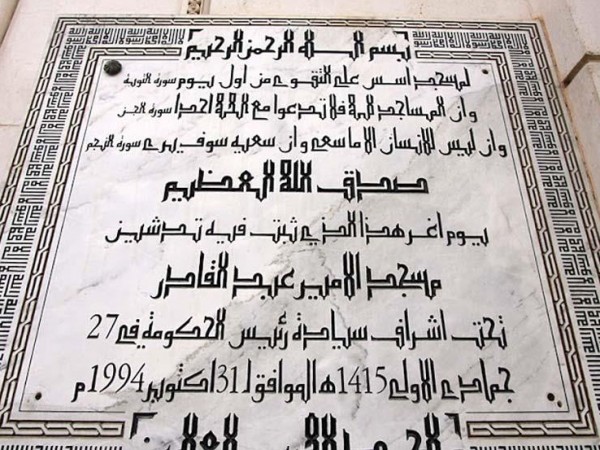 بسم الله الرحمن الرحيم
لمسجد اسس على التقوى من اول يوم سورة التوبة
وان المساجد لله فلا تدعوا مع الله احدا سورة الجن
وان ليس للانسان الا ما سعى وان سعيه سوف يرى سورة النجم
صدق الله العظيم
يوم اغر هذا الذي ثبت فيه تدشين
مسجد الامير عبد القادر
تحت اشراف سيادة رئيس الحكومة في 27
جمادى الاولى 1415ه الموافق ل31 اكتوبر 1994م